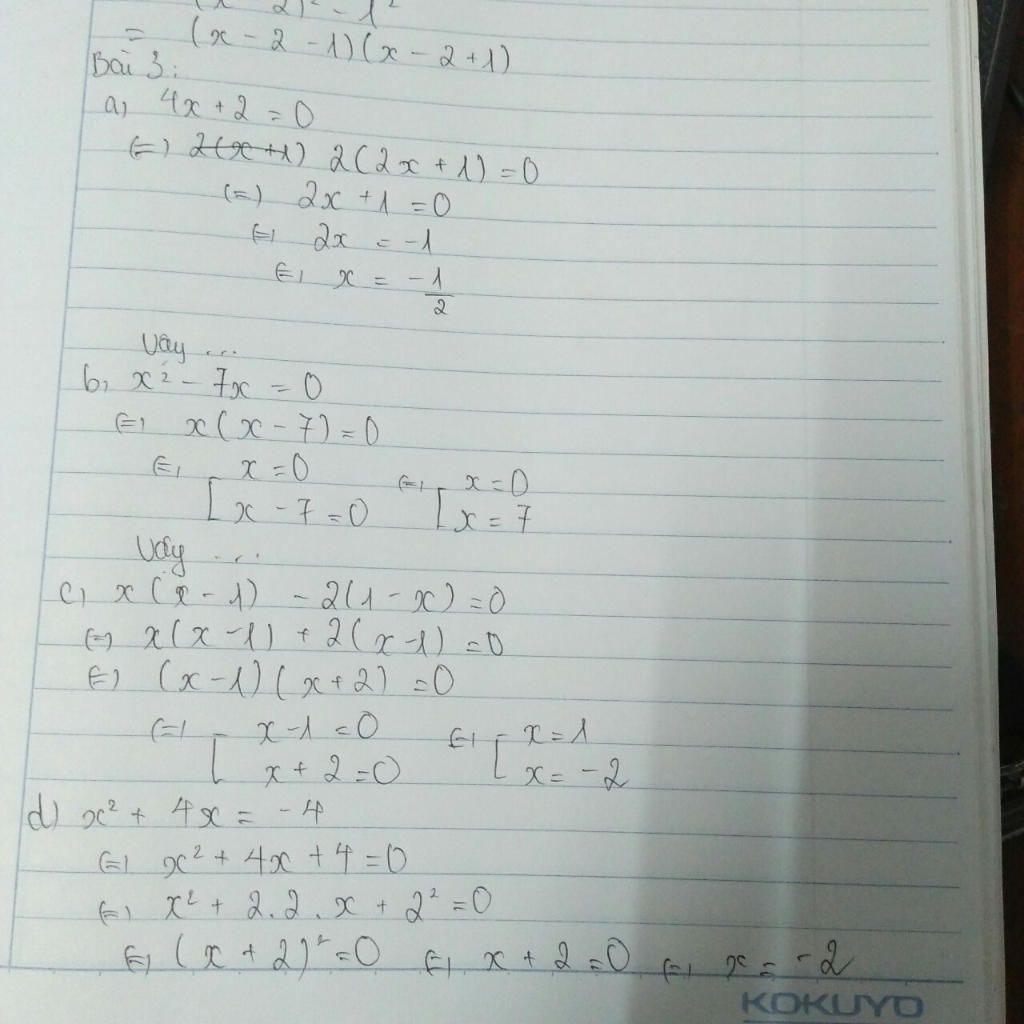 (x - 2)² - 1²
= (x - 2 - 1)(x - 2 + 1)
Bài 3:
a, 4x + 2 = 0
(=) 2(x+1) 2(2x + 1) = 0
(=) 2x + 1 = 0
(=) 2x = -1
(=) x = -1/2
Vậy ...
b, x² - 7x = 0
(=) x(x - 7) = 0
(=) [ x = 0 (=) [ x = 0
x - 7 = 0 x = 7
Vậy ...
c, x(x - 1) - 2(1 - x) = 0
(=) x(x - 1) + 2(x - 1) = 0
(=) (x - 1)(x + 2) = 0
(=) [ x - 1 = 0 (=) [ x = 1
x + 2 = 0 x = -2
d) x² + 4x = -4
(=) x² + 4x + 4 = 0
(=) x² + 2.2.x + 2² = 0
(=) (x + 2)² = 0 (=) x + 2 = 0 (=) x = -2
KOKUYO